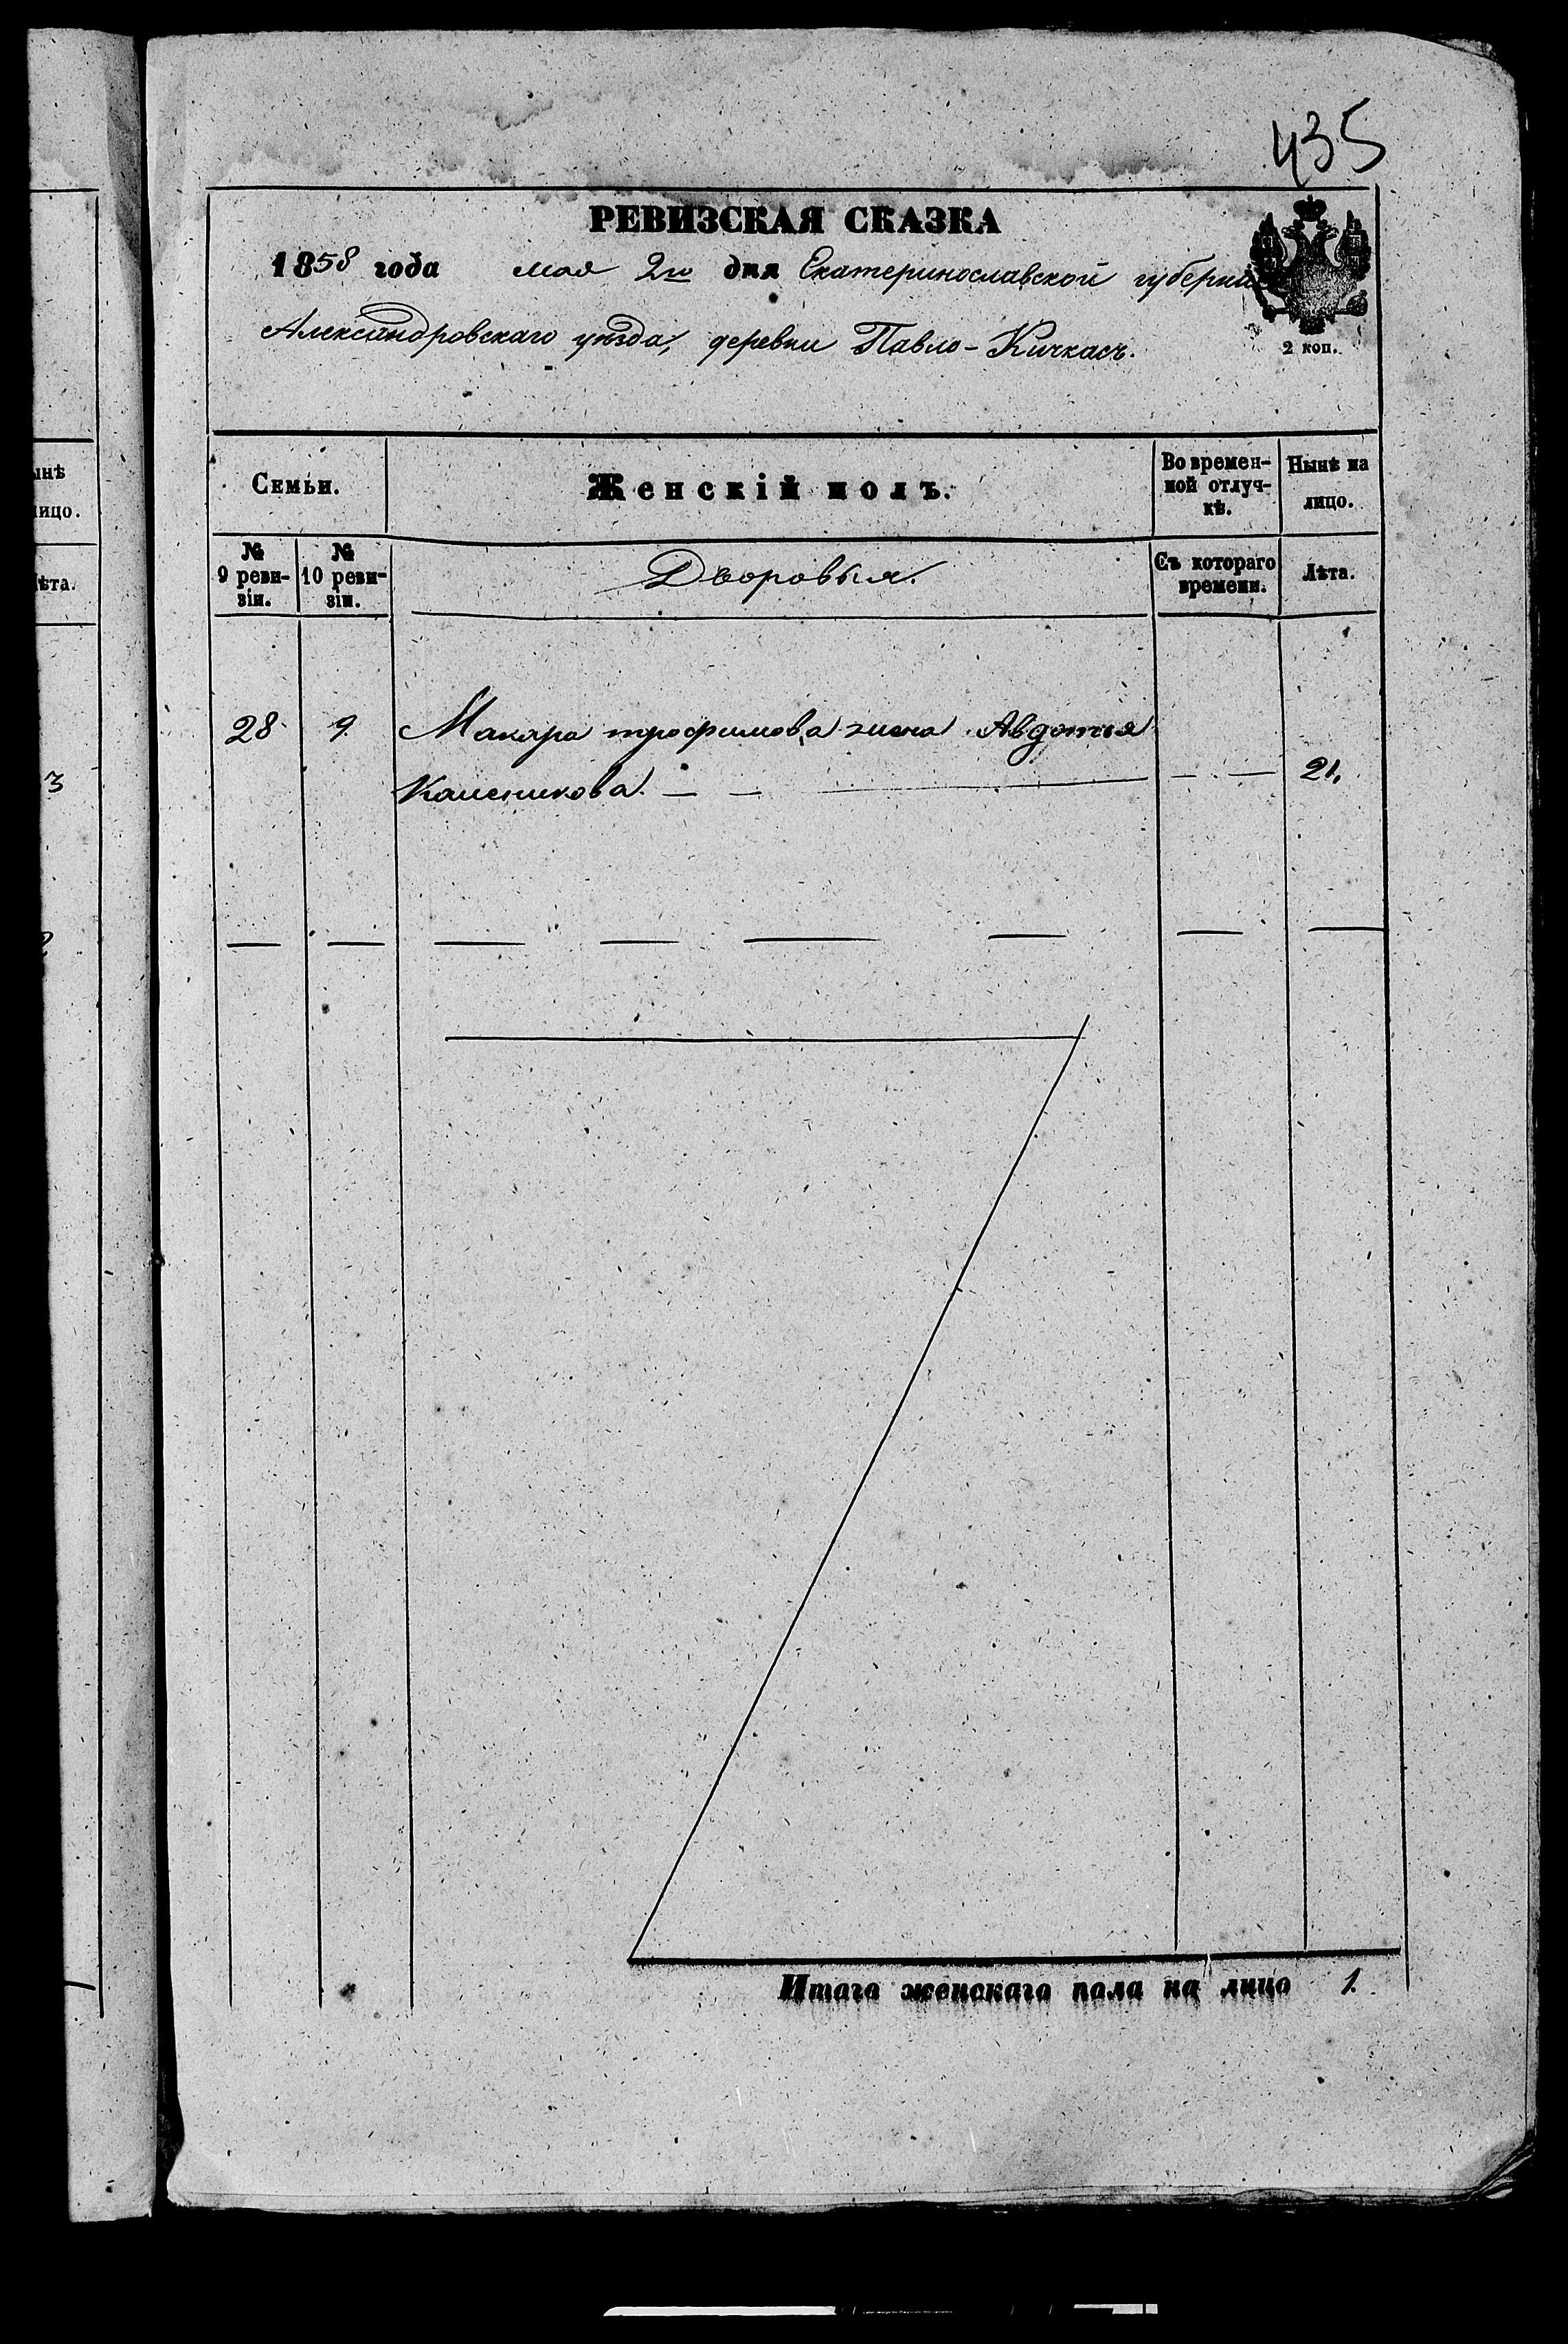 435
РЕВИЗСКАЯ СКАЗКА
1858 года мая 2го дня Екатеринославской губерніи
Александровскаго уѣзда, деревни Павло-Кичкасъ.
2 коп.
Семьи.
Женскій полъ.
Во времен-
ной отлуч-
кѣ.
Нынѣ на
лицо.
№
9 реви-
зіи.
№
10 реви-
зіи.
Дворовыя.
Съ котораго
времени.
Лѣта.
28 9. Макара трофимова жена Авдотья
21.
Итого женскаго пола на лицо 1.
ынѣ
лицо.
ѣта.
3